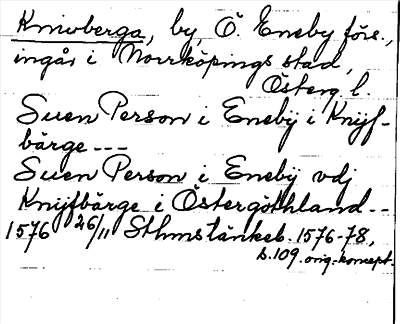 Knivberga, by, Ö. Eneby förs.,
ingår i Norrköpings stad,
Österg. l.
Suen Person i Eneby i Knijf-
bärge ---
Suen Person i Eneby vdj
Knijfbärge i Östergöthland --
1576 26/11 Sthms tänkeb. 1576-78,
s. 109. orig.-koncept.